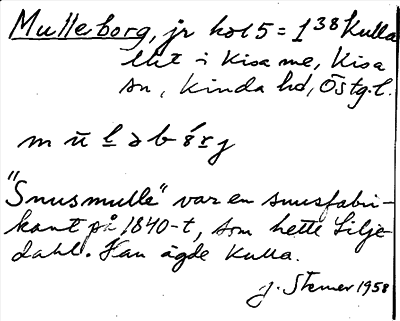 Mulleborg, jr hol 5 = 1³⁸ Kulla
litt i Kisa me, Kisa
sn, Kinda hd, Östg.l.
"Snusmulle" var en snusfabri-
kant på 1840-t, som hette Lilje-
dahl. Han ägde Kulla.
J. Stemer 1958